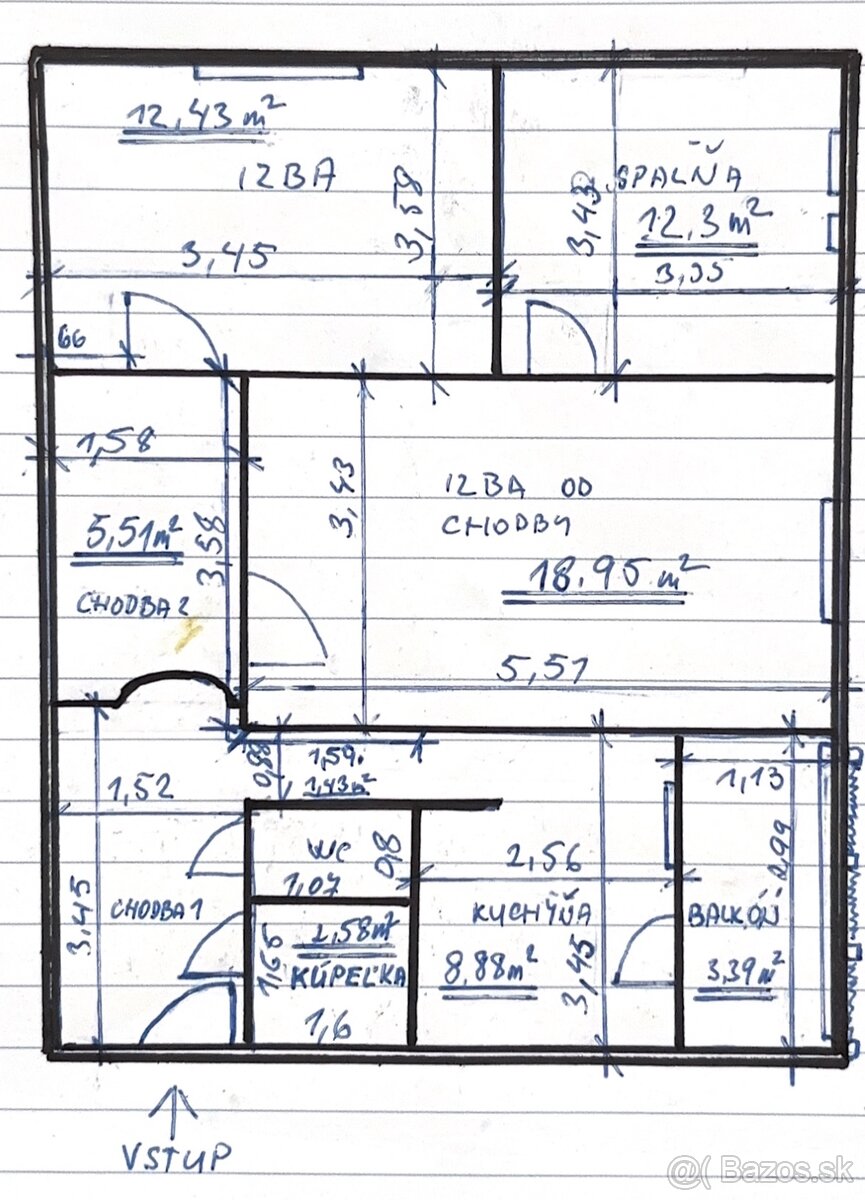 12,43 m²
IZBA
3,58
3,45
3,43
SPALŇA
12,3 m²
66
1,58
5,51 m²
3,58
CHODBA 2
3,43
IZBA OD
CHODBY
18.95 m²
5,51
0,88
1,59.
1,43 m²
1,52
1,13
2,99
WC
0,8
1,07
2,56
3,45
CHODBA 1
KUCHYŇA
BALKÓN
1,65
2,58 m²
KÚPEĽKA
8,88 m²
3,45
3,39 m²
1,6
VSTUP
@( Bazos.sk